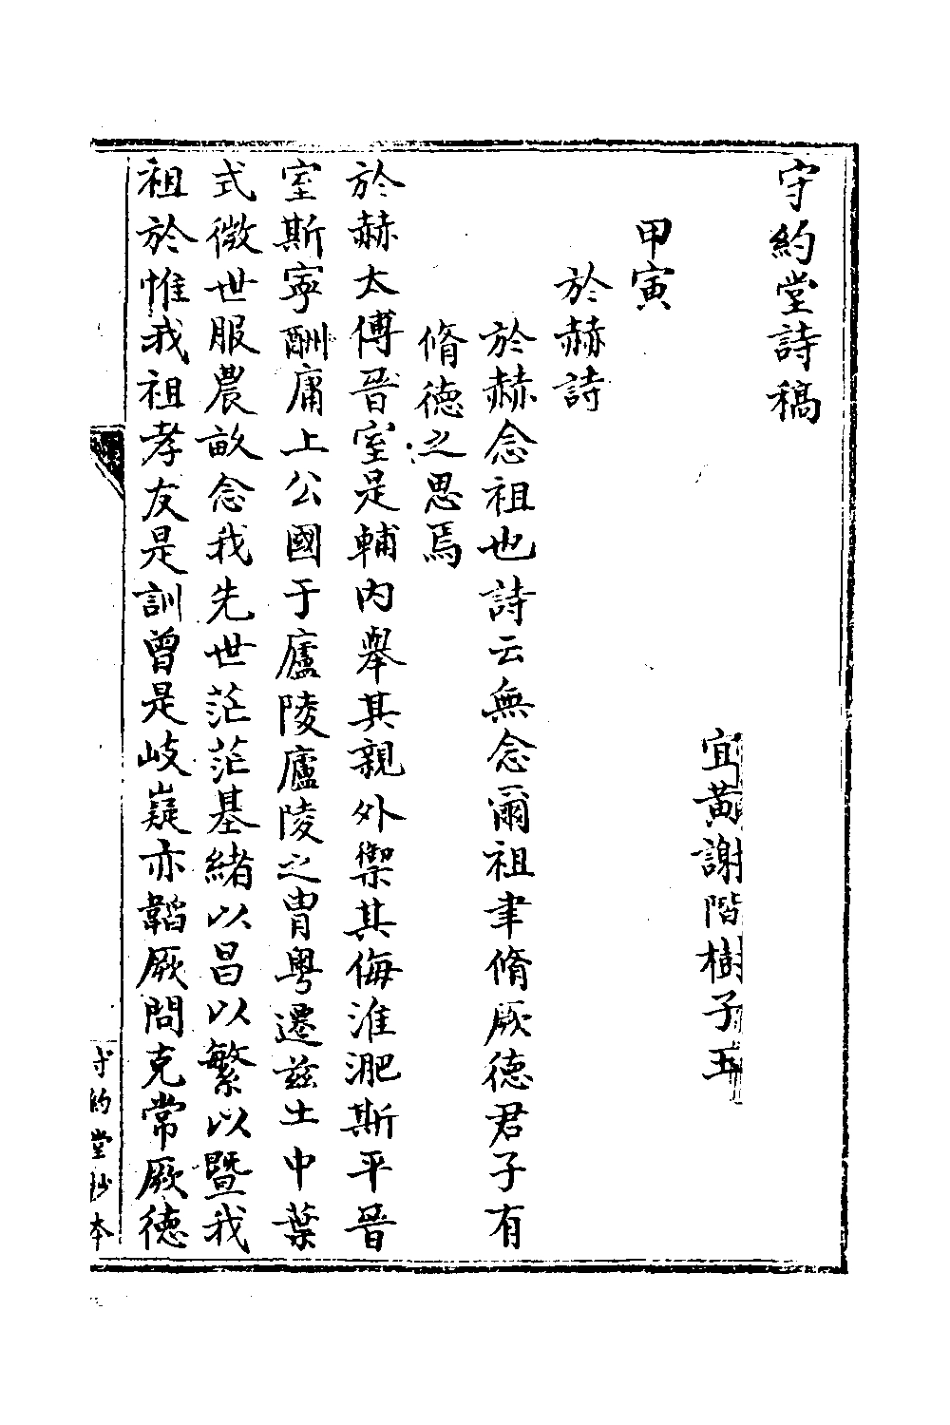 守約堂詩稿
宜黃謝階樹子玉
甲寅
於赫詩
於赫念祖也詩云無念爾祖聿脩厥德君子有
脩德之思焉
於赫太傅晉室是輔內舉其親外禦其侮淮淝斯平晉
室斯寧酬庸上公國于廬陵廬陵之冑粵遷茲土中葉
式微世服農畝念我先世茫茫基緒以昌以繁以暨我
祖於惟我祖孝友是訓曾是岐嶷亦韜厥問克常厥德
守約堂抄本